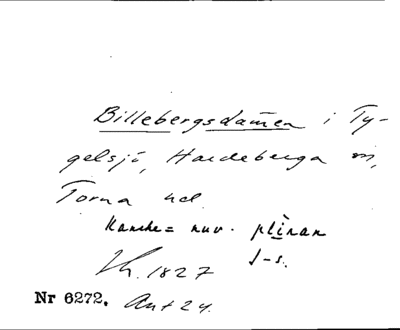 Billebergsdam̅en i Ty-
gelsjö, Hardeberga sn,
Torna hd.
Kanske = nuv. plìnan
Nr 6272.